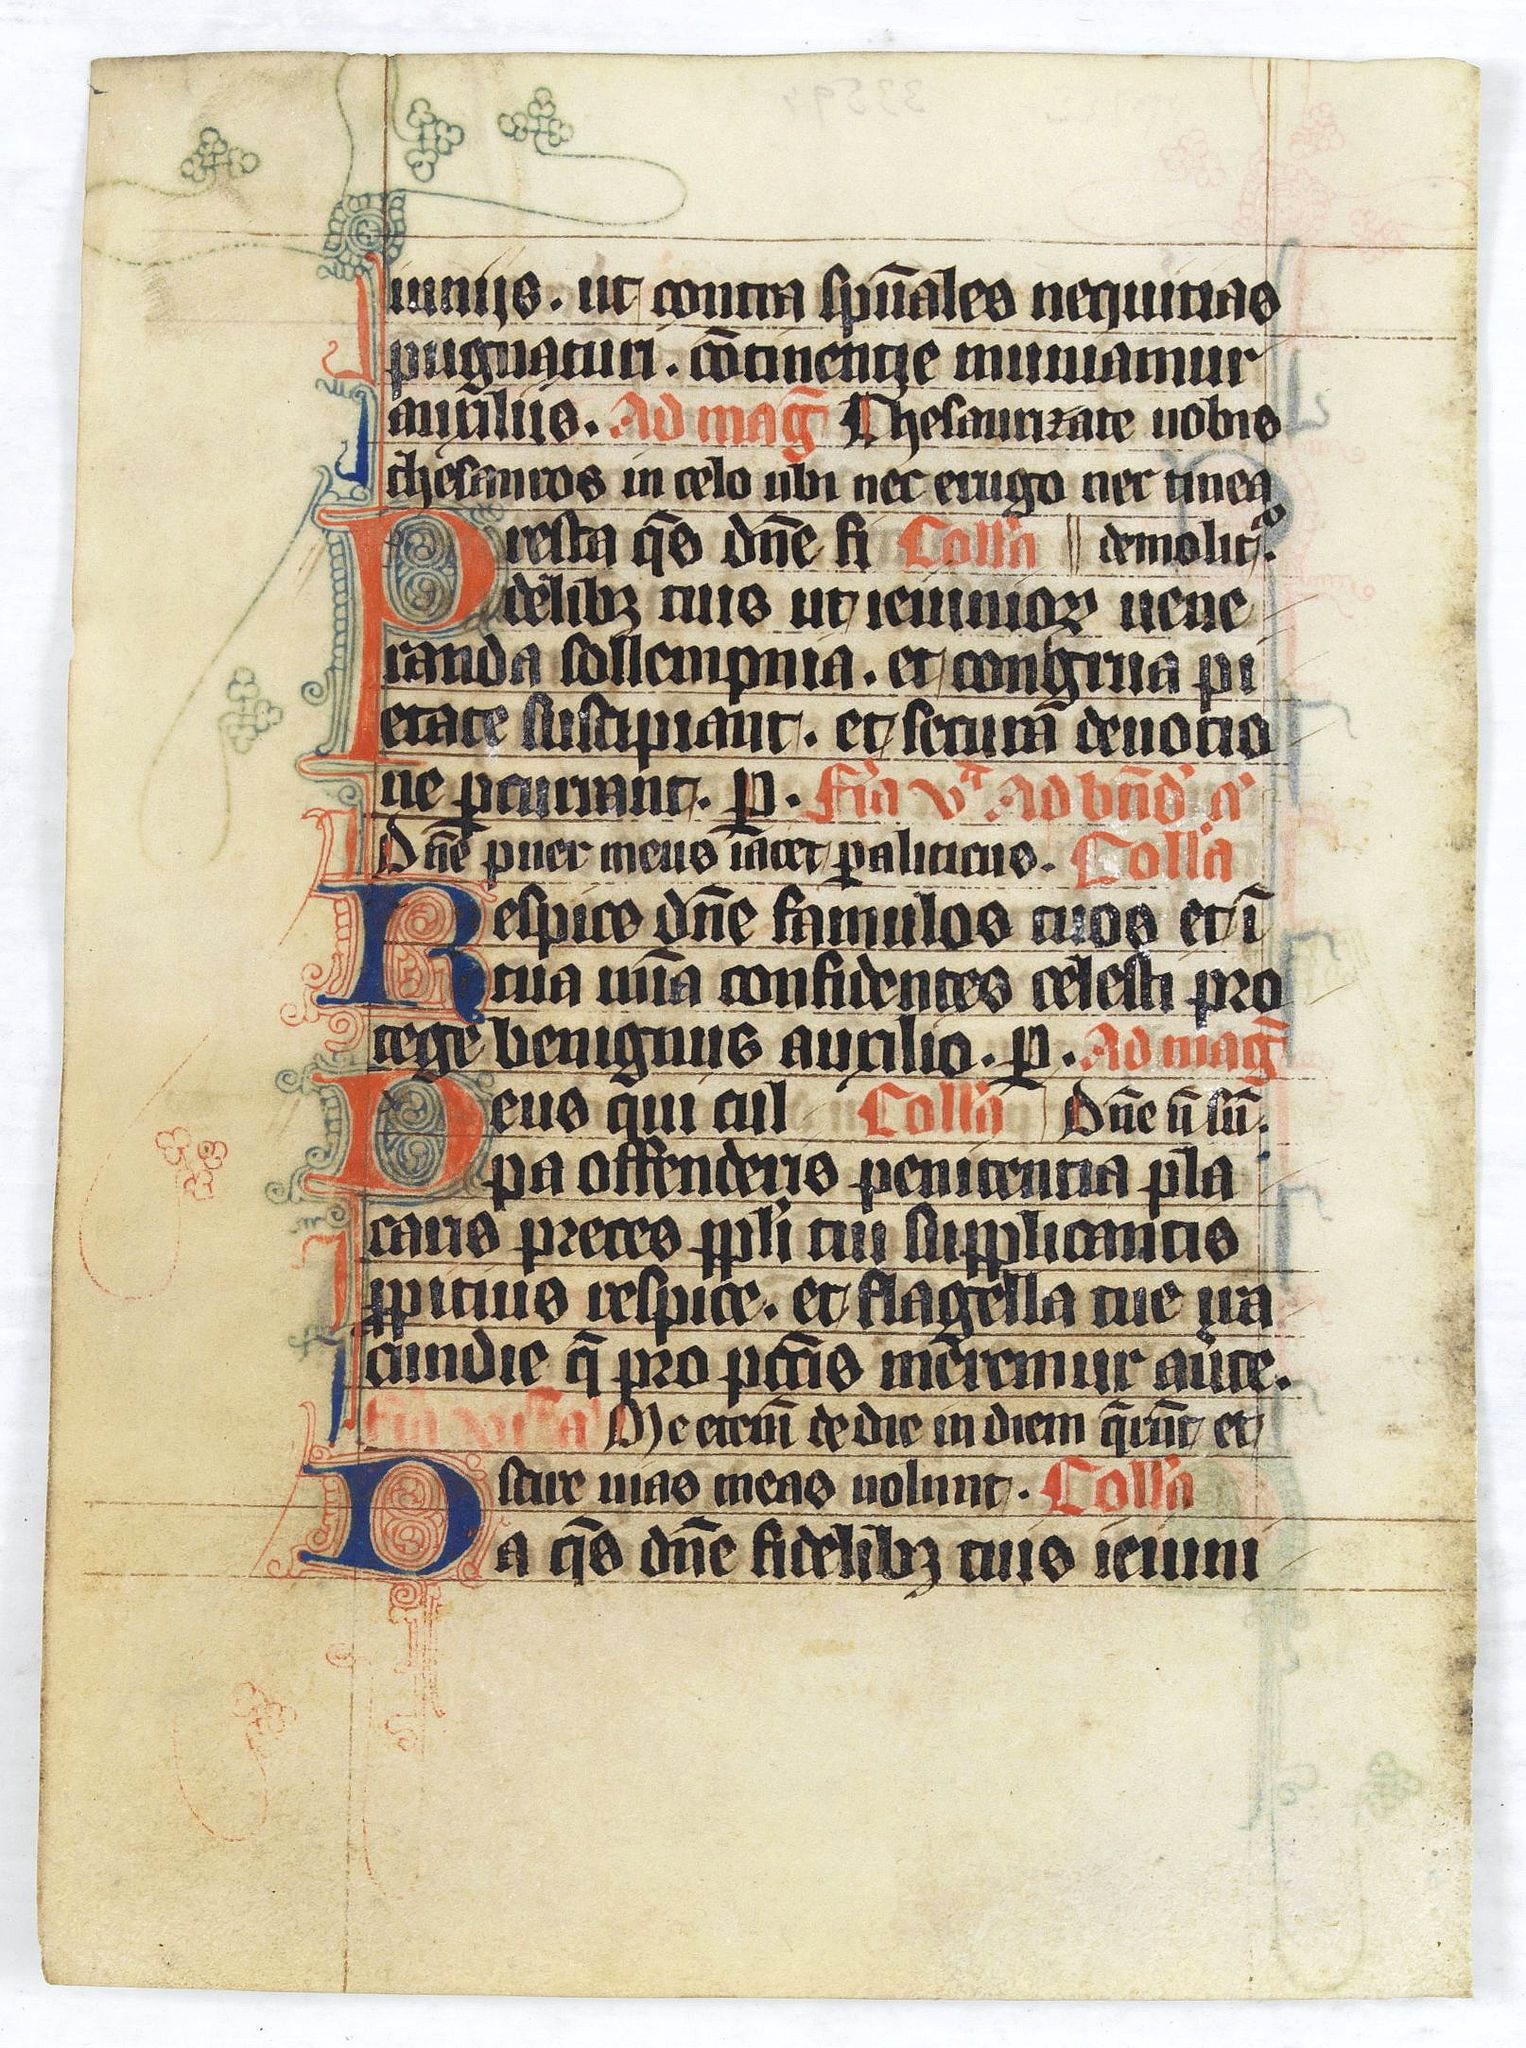 iuniis. ut contra spūales nequitias
pugnaturi. cōtinentie muniamur
auxiliis. Ad maḡ Thesaurizate uobis
thesauros in celo ubi nec erugo nec tinea
Presta qs̄ dn̄e fi Coll'a demolit᷑.
delibꝫ tuis ut ieiunioꝝ uene
randa sollempnia. et congrua pi
etate suscipiant. et secura deuotio
ne ꝑcurrant. P. Fr̄ia vͣ Ad bn̄d' a'
Dn̄e puer meus iacet ꝑaliticus. Coll'a
Respice dn̄e famulos tuos et ī
tua mīa confidentes celesti pro
tege benignus auxilio. P. Ad maḡ
Deus qui cul Coll'a Dn̄e n̄ sū.
pa offenderis penitentia pla
caris preces ppl'i tui supplicantis
ꝓpitius respice. et flagella tue ira
cundie q̄ pro pctīs meremur au̾te.
Me eteni de die in diem q̄rūt et
scire uias meas uolunt. Coll'a
Da qs̄ dn̄e fidelibꝫ tuis ieiuni